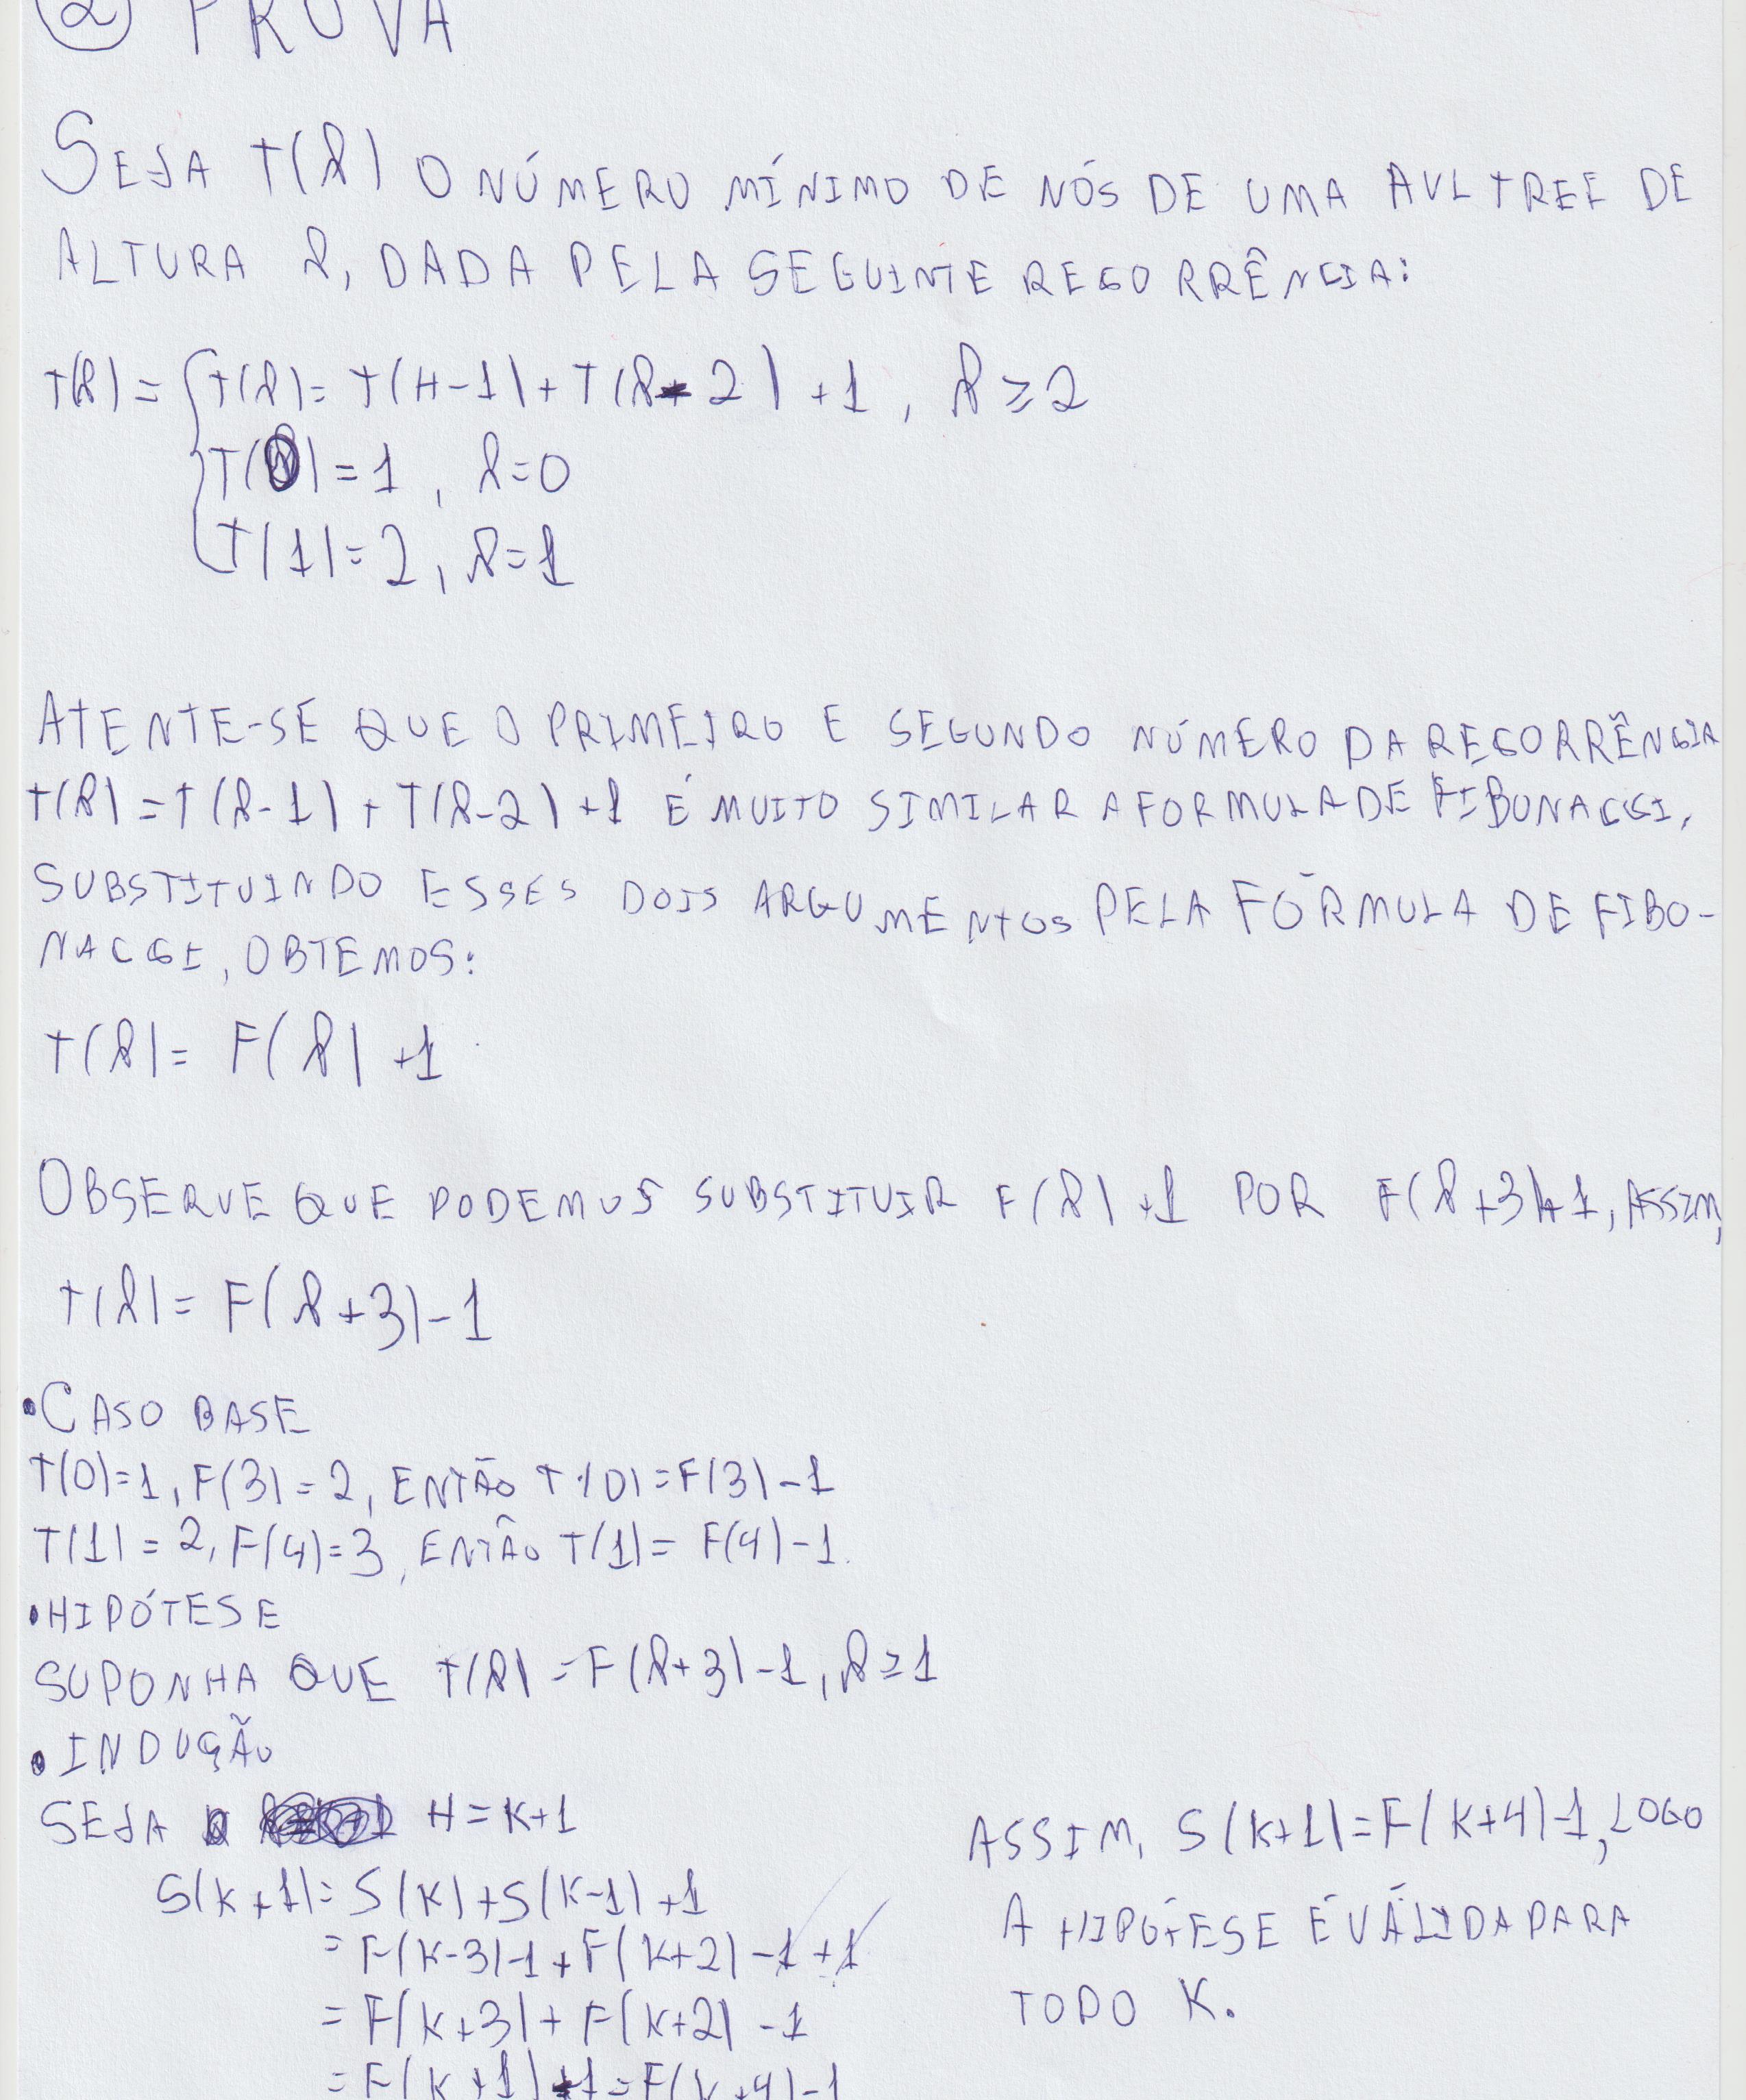 ② PROVA
SEJA T(h) O NÚMERO MÍNIMO DE NÓS DE UMA AVL TREE DE
ALTURA h, DADA PELA SEGUINTE RECORRÊNCIA:
T(h) = { T(h) = T(H-1) + T(h-2) + 1, h ≥ 2
T(0) = 1, h=0
T(1) = 2, h=1
ATENTE-SE QUE O PRIMEIRO E SEGUNDO NÚMERO DA RECORRÊNCIA
T(h) = T(h-1) + T(h-2) + 1 É MUITO SIMILAR A FORMULA DE FIBONACCI,
SUBSTITUINDO ESSES DOIS ARGUMENTOS PELA FÓRMULA DE FIBO-
NACCI, OBTEMOS:
T(h) = F(h) + 1
OBSERVE QUE PODEMOS SUBSTITUIR F(h) + 1 POR F(h+3)-1, ASSIM,
T(h) = F(h+3) - 1
• CASO BASE
T(0)=1, F(3)=2, ENTÃO T(0) = F(3) - 1
T(1) = 2, F(4)=3, ENTÃO T(1) = F(4) - 1.
• HIPÓTESE
SUPONHA QUE T(h) = F(h+3) - 1, h ≥ 1
• INDUÇÃO
SEJA H = K+1
S(K+1) = S(K) + S(K-1) + 1
= F(K-3)-1 + F(K+2) - 1 + 1
= F(K+3) + F(K+2) - 1
= F(K+1)+1 = F(K+4)-1
ASSIM, S(K+1) = F(K+4)-1, LOGO
A HIPÓTESE É VÁLIDA PARA
TODO K.